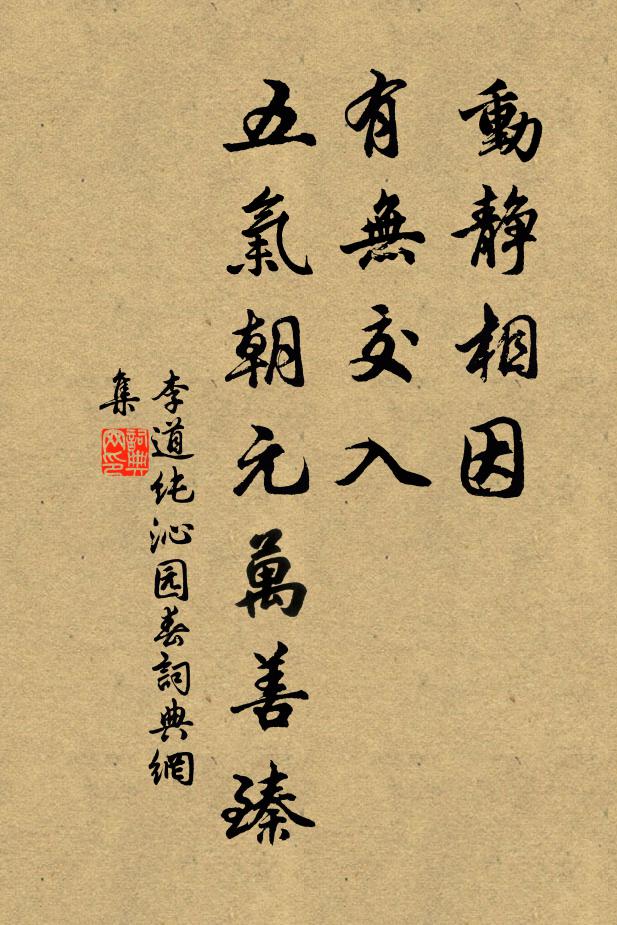 動静相因
有無交入
五氣朝元萬善臻
李道纯沁园春詞典網
集
詞典
网印